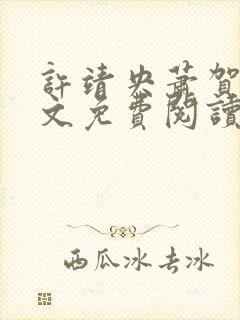 許靖央蕭賀
文免費閱讀
西瓜冰去冰